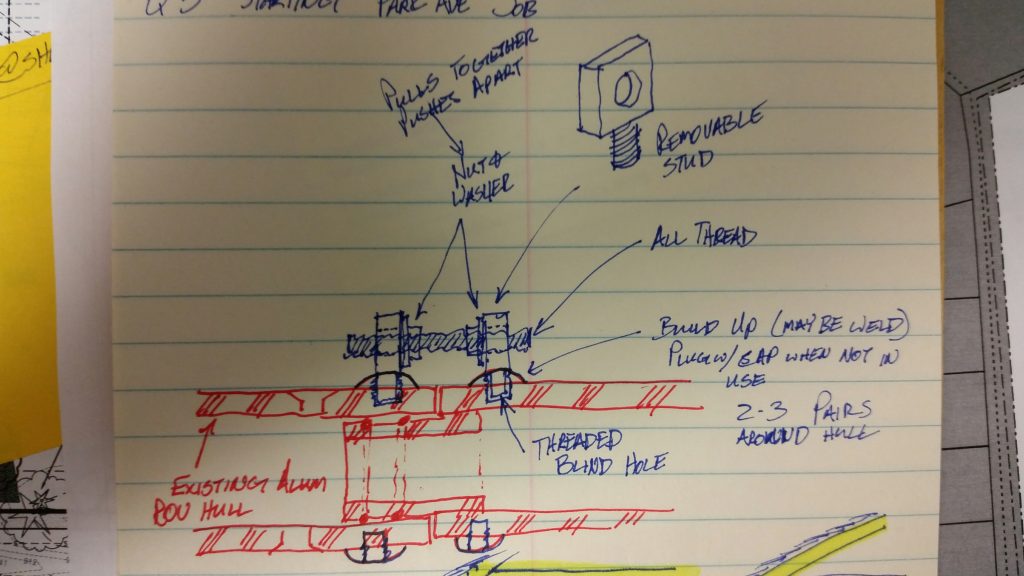 STARTING PARK AVE JOB
@SH
PULLS TOGETHER
PUSHES APART
NUT &
WASHER
REMOVABLE
STUD
ALL THREAD
BUILD UP (MAYBE WELD)
PLUG W/ CAP WHEN NOT IN
USE
2-3 PAIRS
AROUND HULL
THREADED
BLIND HOLE
EXISTING ALUM
ROV HULL